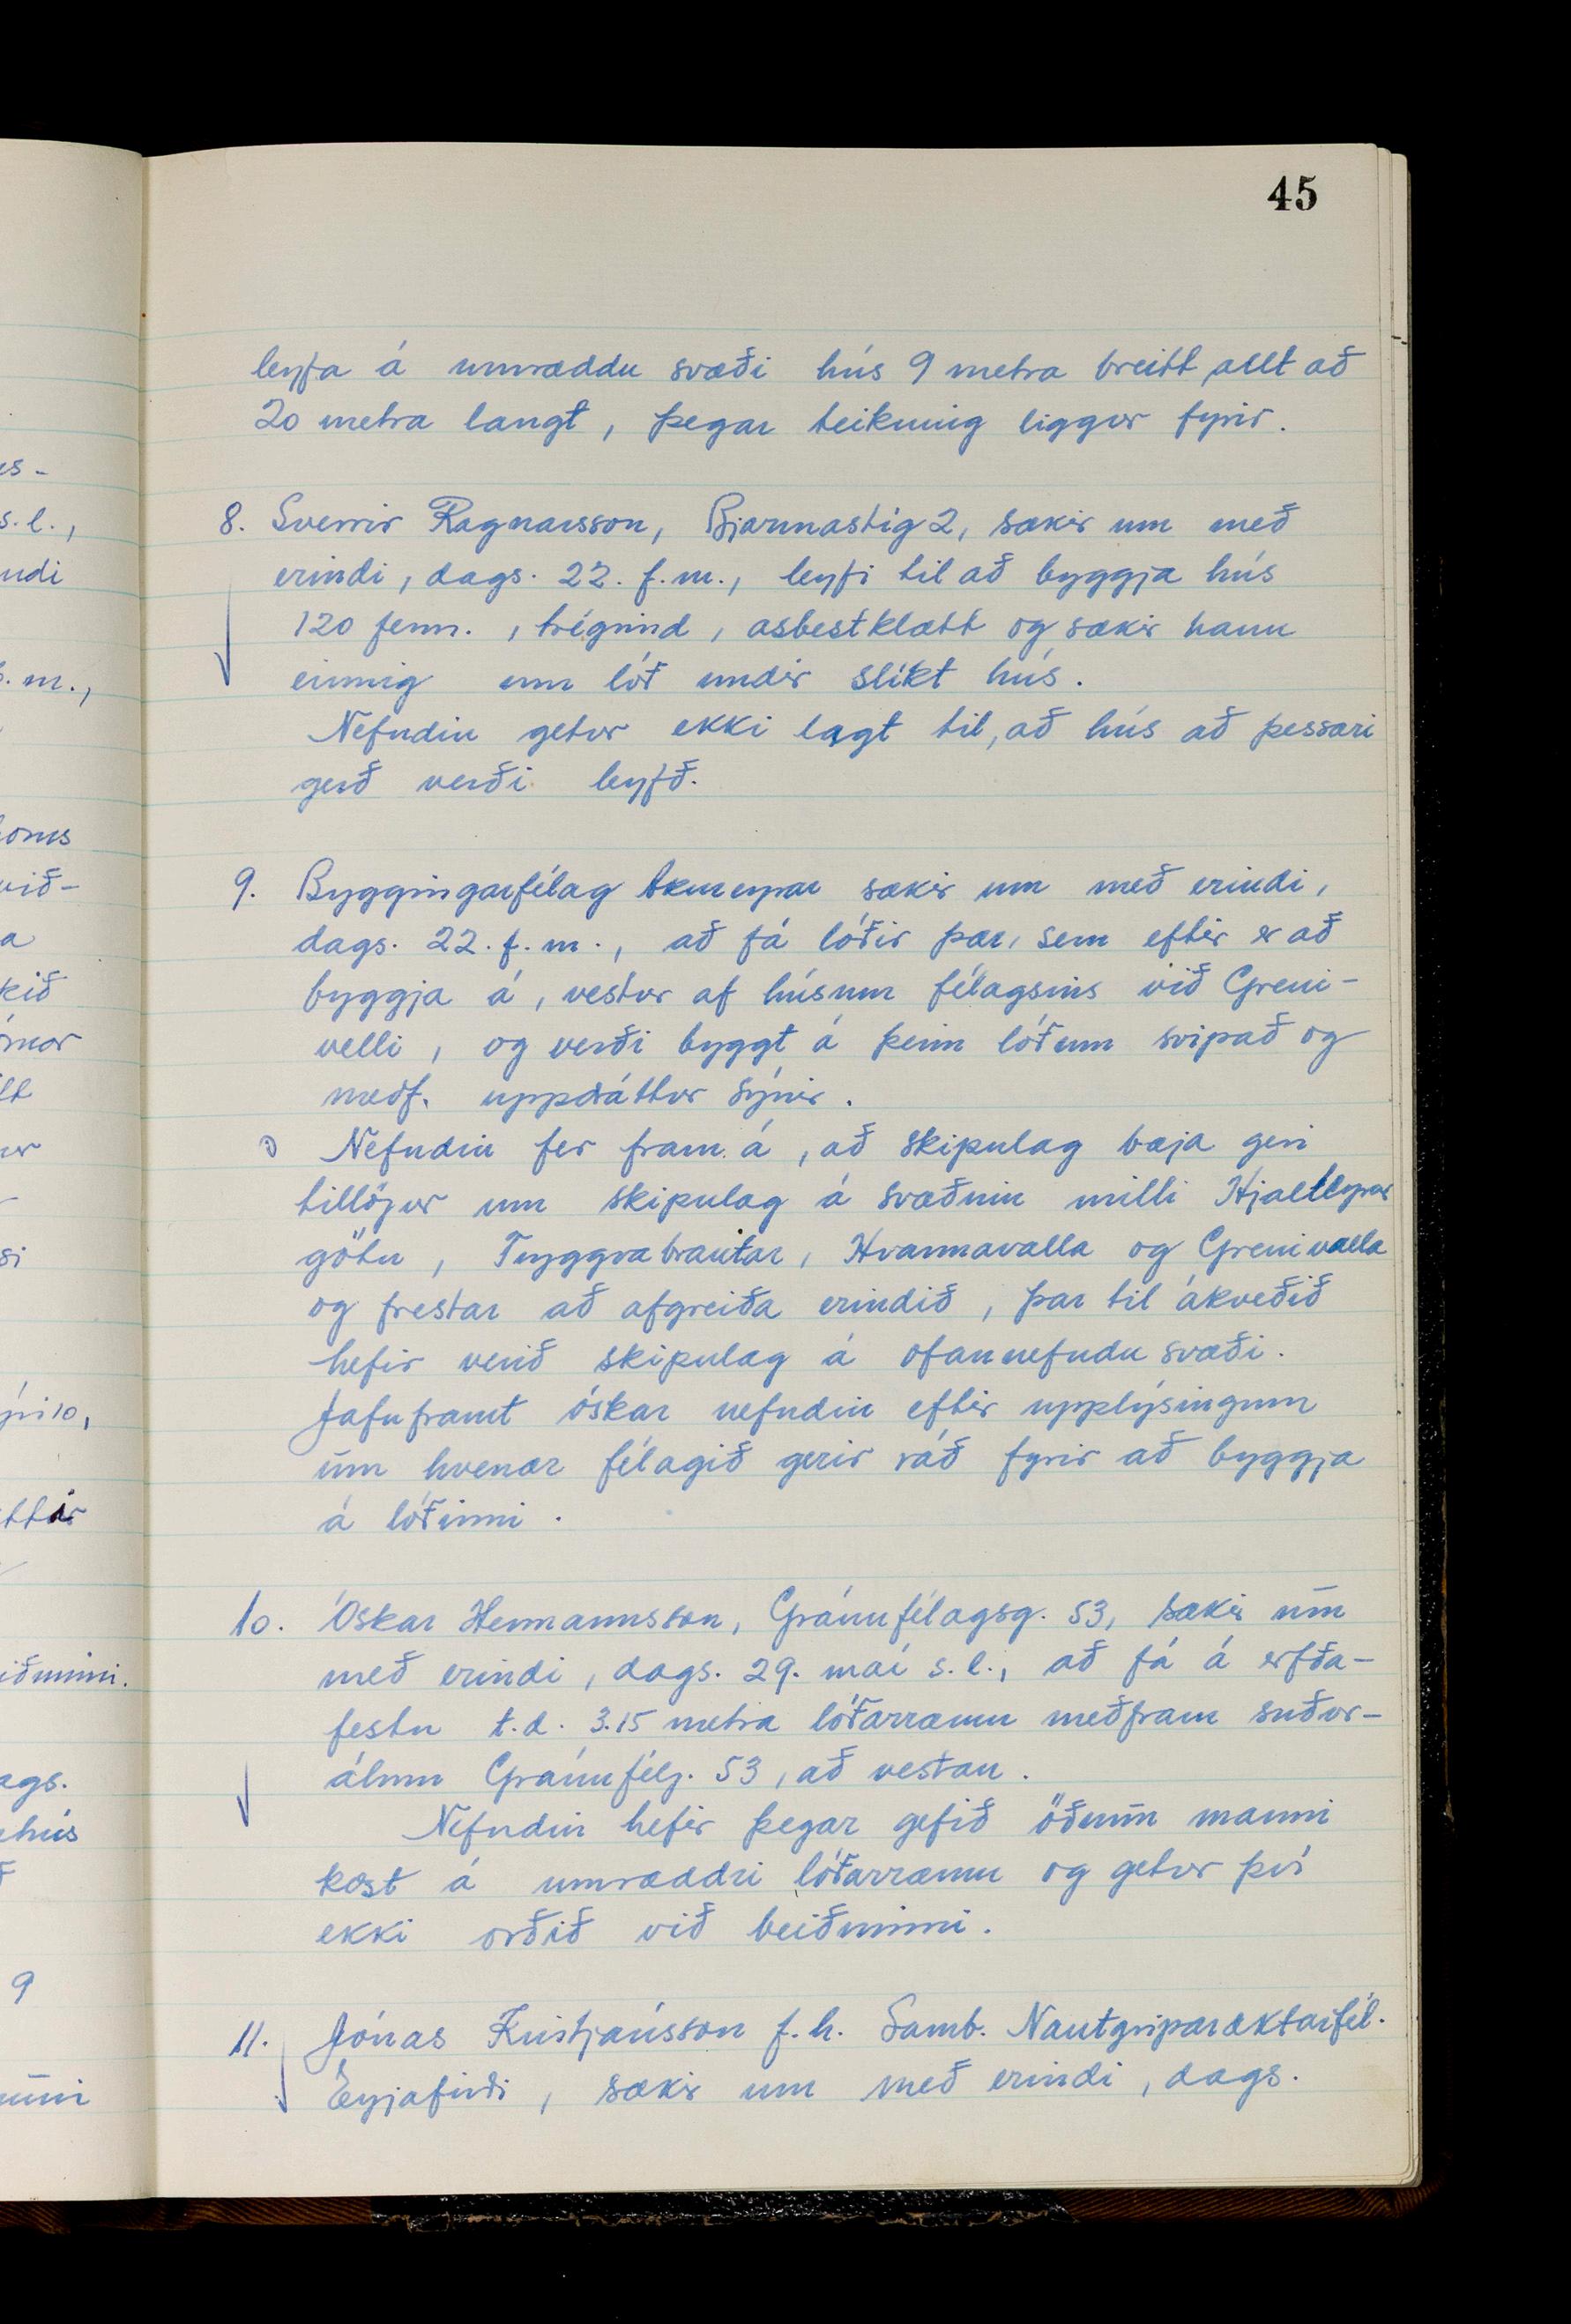 45
leyfa á umræddu svæði hús 9 metra breitt, allt að
20 metra langt, þegar teikning liggur fyrir.
8. Sverrir Ragnarsson, Bjarmastíg 2, sækir um með
erindi, dags. 22. f.m., leyfi til að byggja hús
120 ferm., trégrind, asbestklætt og sækir hann
einnig um lóð undir slíkt hús.
Nefndin getur ekki lagt til, að hús að þessari
gerð verði leyfð.
9. Byggingarfélag Akureyrar sækir um með erindi,
dags. 22. f.m., að fá lóðir þær, sem eftir er að
byggja á, vestur af húsum félagsins við Greni-
velli, og verði byggt á þeim lóðum svipað og
meðf. uppdráttur sýnir.
Nefndin fer fram á, að skipulag bæja geri
tillögur um skipulag á svæðnin milli Hjalteyrar
götu, Tryggvabrautar, Hvannavalla og Grenivalla
og frestar að afgreiða erindið, þar til ákveðið
hefir verið skipulag á ofannefndu svæði.
Jafnframt óskar nefndin eftir upplýsingum
um hvenær félagið gerir ráð fyrir að byggja
á lóðinni.
10. Óskar Hermannsson, Gránufélagsg. 53, sækir um
með erindi, dags. 29. maí s.l., að fá á erfða-
festu t.d. 3.15 metra lóðarræmu meðfram suður-
álmu Gránufélg. 53, að vestan.
Nefndin hefir þegar gefið öðrum manni
kost á umræddri lóðarræmu og getur því
ekki orðið við beiðninni.
11. Jónas Kristjánsson f.h. Samb. Nautgriparæktarfél.
Eyjafirði, sækir um með erindi, dags.